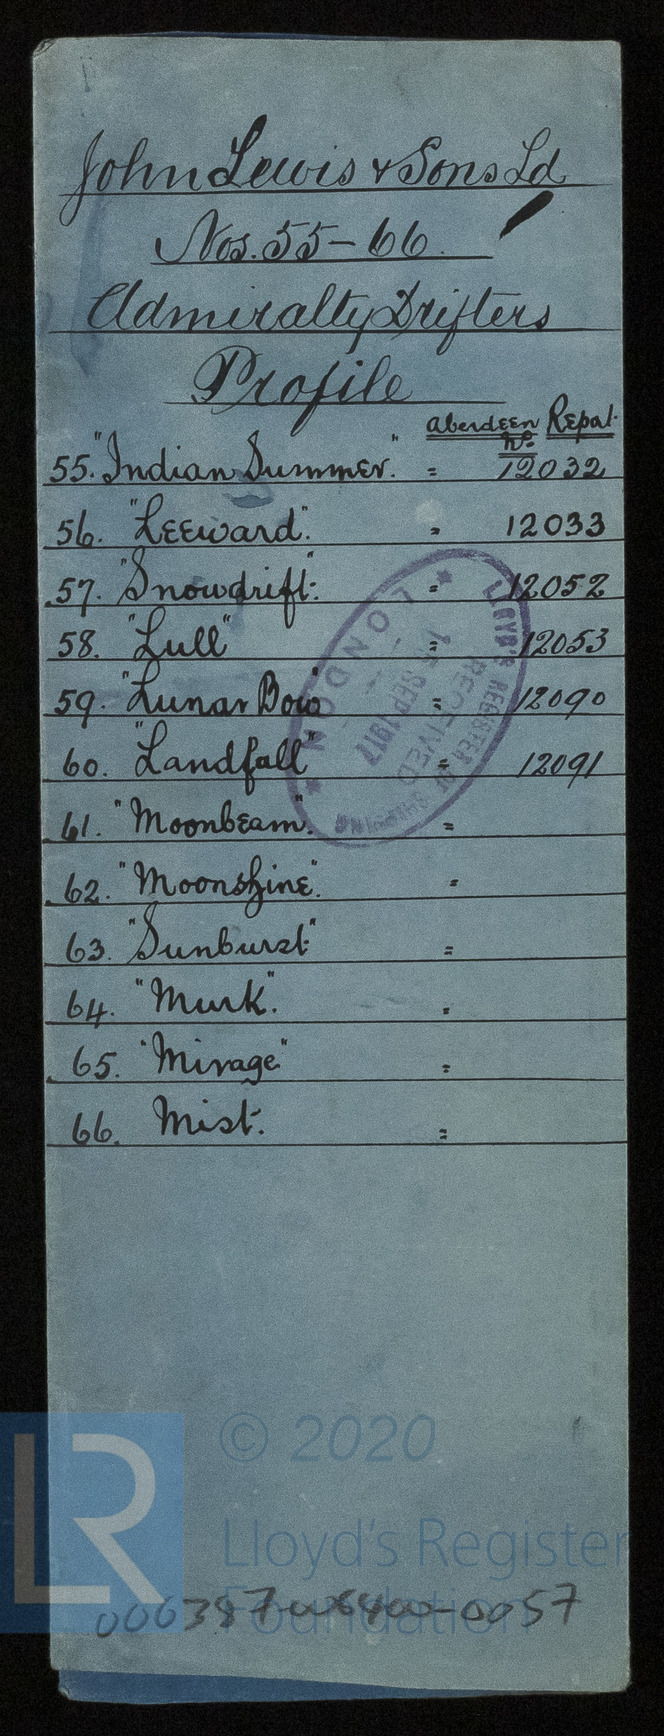 John Lewis & Sons Ld
Nos. 55-66.
Admiralty Drifters
Profile
Aberdeen Repat.
No.
55. "Indian Summer." = 12032
56. "Leeward". = 12033
57. "Snowdrift". = 12052
58. "Lull" = 12053
59. "Lunar Bow" = 12090
60. "Landfall" = 12091
61. "Moonbeam". =
62. "Moonshine". =
63. "Sunburst" =
64. "Murk". =
65. "Mirage" =
66. Mist. =
LLOYD'S REGISTER OF SHIPPING
RECEIVED
SEP 1917
LONDON
© 2020
LR
Lloyd's Register
Foundation